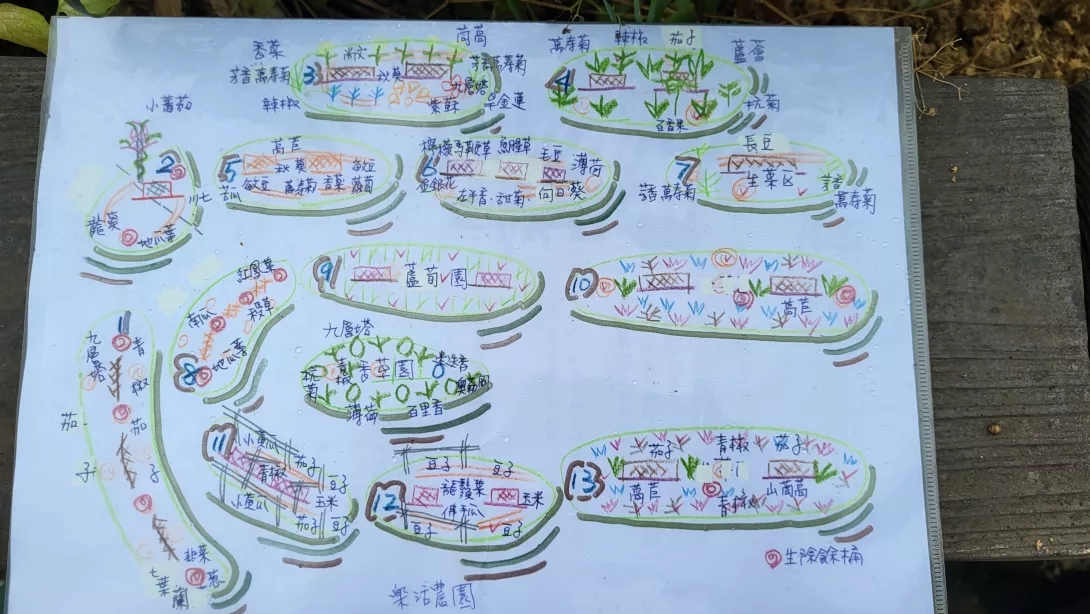 香菜
茼蒿
芳香萬壽菊
3
秋葵
芳香萬壽菊
九層塔
辣椒
紫蘇
旱金蓮
萬壽菊
辣椒
茄子
蘆薈
4
杭菊
百香果
小蕃茄
2
川七
龍葵
地瓜葉
5
萵苣
秋葵
敏豆
苦瓜
敏豆
萬壽菊
香菜
蘿蔔
6
檸檬馬鞭草
魚腥草
毛豆
薄荷
金銀花
左手香、甜菊、向日葵
7
長豆
生菜区
芳香萬壽菊
芳香
萬壽菊
紅鳳菜
南瓜
8
地瓜葉
9
蘆筍園
10
萵苣
九層塔
香草園
杭菊
薄荷
百里香
1
九層塔
青椒
茄子
茄子
韭菜
蔥
七葉蘭
11
小黃瓜
青椒
茄子
豆子
小黃瓜
玉米
茄子
豆子
12
豆子
豆子
龍鬚菜
佛手瓜
玉米
豆子
豆子
13
茄子
青椒
茄子
萵苣
山茼蒿
青椒
生除餘桶
樂活農園